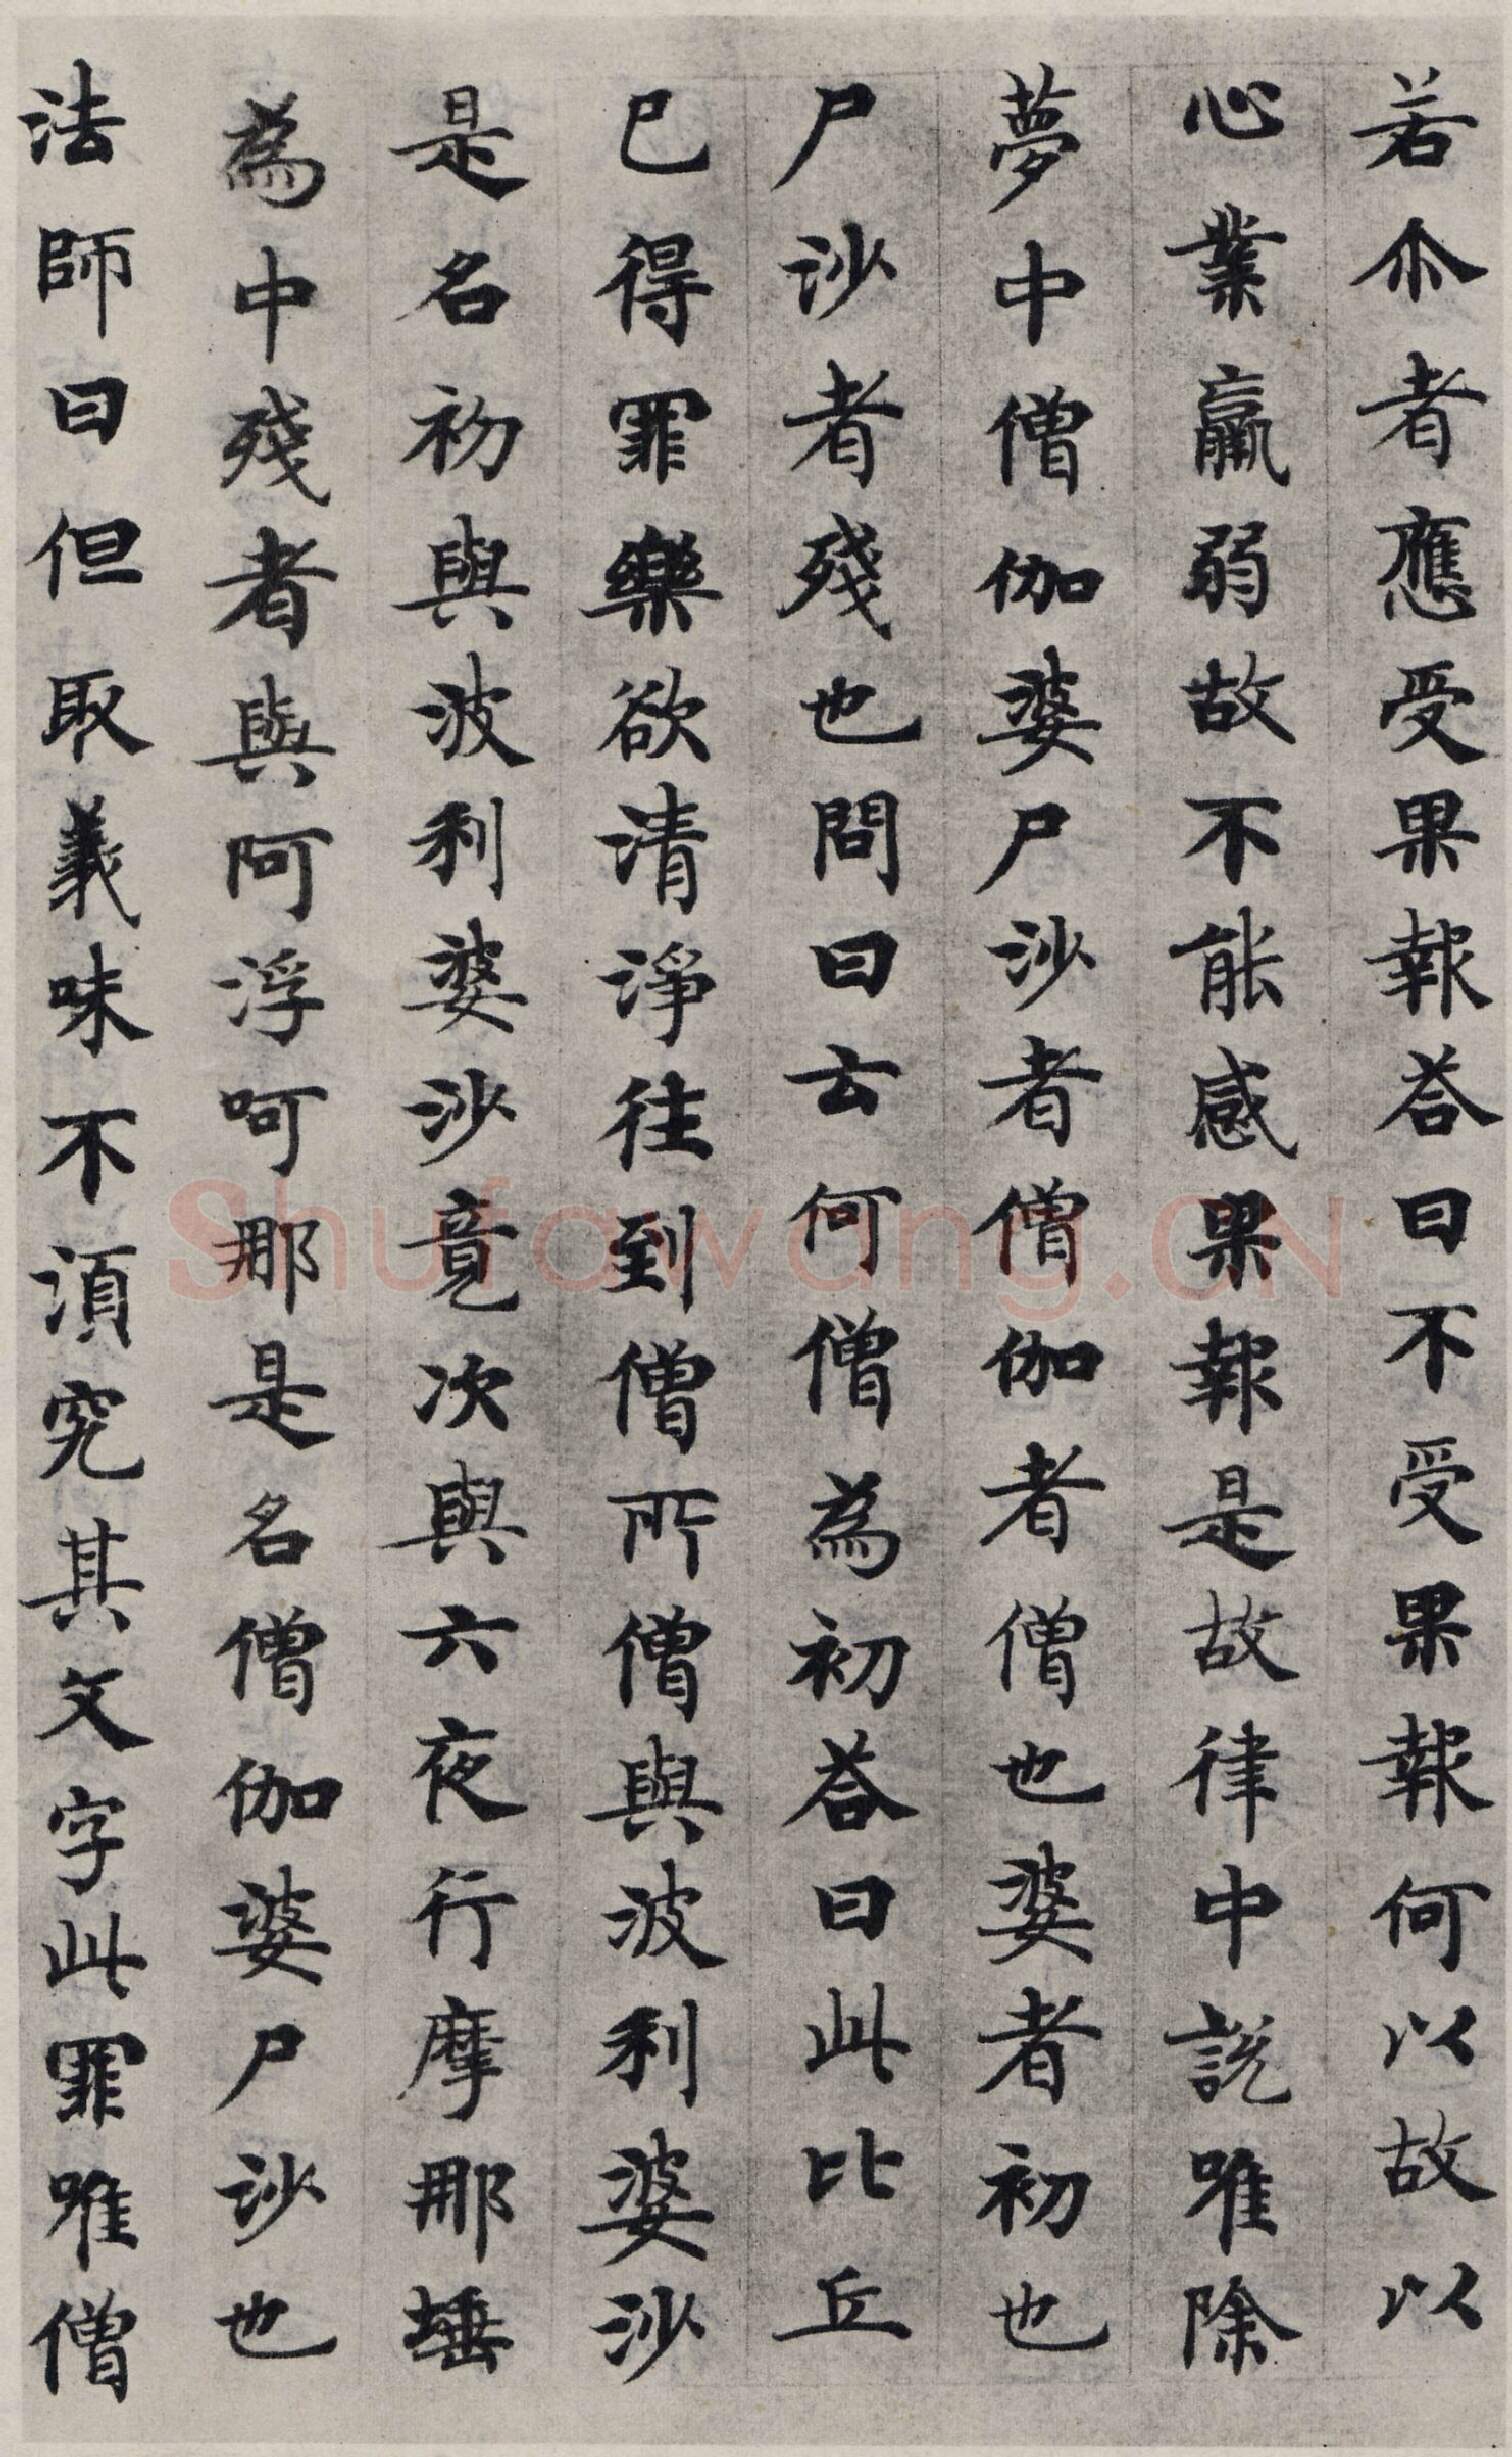 若尒者應受果報荅曰不受果報何以故以
心業羸弱故不能感果報是故律中説唯除
夢中僧伽婆尸沙者僧伽者僧也婆者初也
尸沙者殘也問曰云何僧為初荅曰此比丘
已得罪樂欲清淨往到僧所僧與波利婆沙
是名初與波利婆沙竟次與六夜行摩那埵
為中殘者與阿浮呵那是名僧伽婆尸沙也
法師曰但取義味不須究其文字此罪唯僧
Shufawang.CN